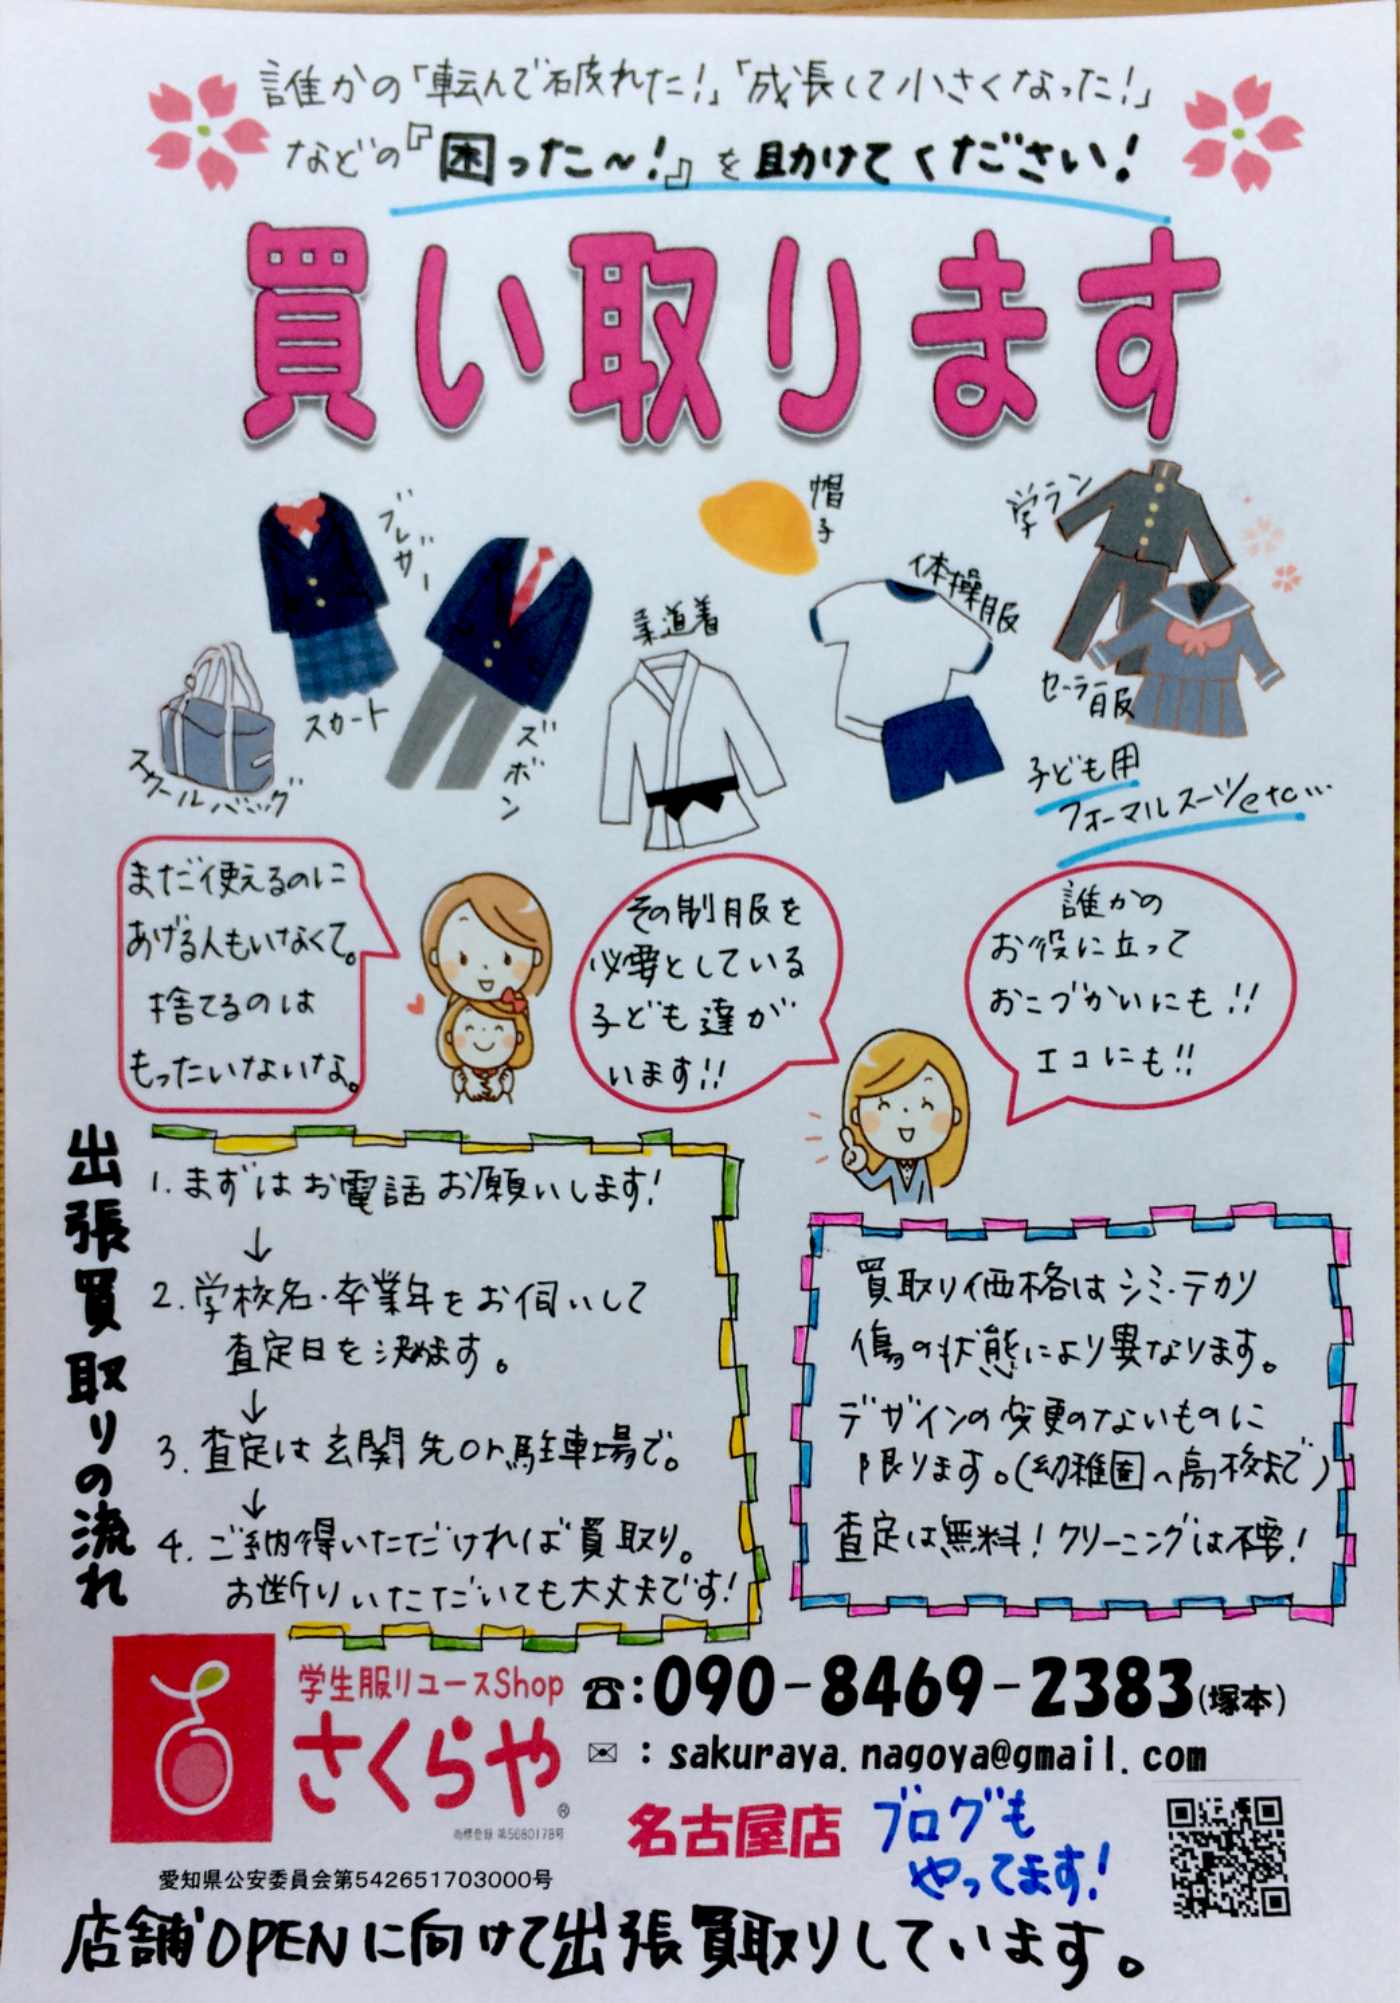 誰かの「転んで破れた!」「成長して小さくなった!」
などの『困った～!』を助けてください!
買い取ります
ブレザー
帽子
学ラン
体操服
柔道着
セーラー服
スカート
ズボン
スクールバッグ
子ども用
フォーマルスーツetc…
まだ使えるのに
あげる人もいなくて。
捨てるのは
もったいないな。
その制服を
必要としている
子ども達が
います!!
誰かの
お役に立って
おこづかいにも!!
エコにも!!
出張買取りの流れ
1. まずはお電話お願いします!
↓
2. 学校名・卒業年をお伺いして
査定日を決めます。
↓
3. 査定は玄関先or駐車場で。
↓
4. ご納得いただければ買取り。
お断りいただいても大丈夫です!
買取り価格はシミ・テカリ
傷の状態により異なります。
デザインの変更のないものに
限ります。(幼稚園～高校まで)
査定は無料!クリーニングは不要!
学生服リユースShop
さくらや®
商標登録 第5680178号
☎:090-8469-2383(塚本)
✉:sakuraya.nagoya@gmail.com
名古屋店
ブログも
やってます!
愛知県公安委員会第542651703000号
店舗OPENに向けて出張買取りしています。